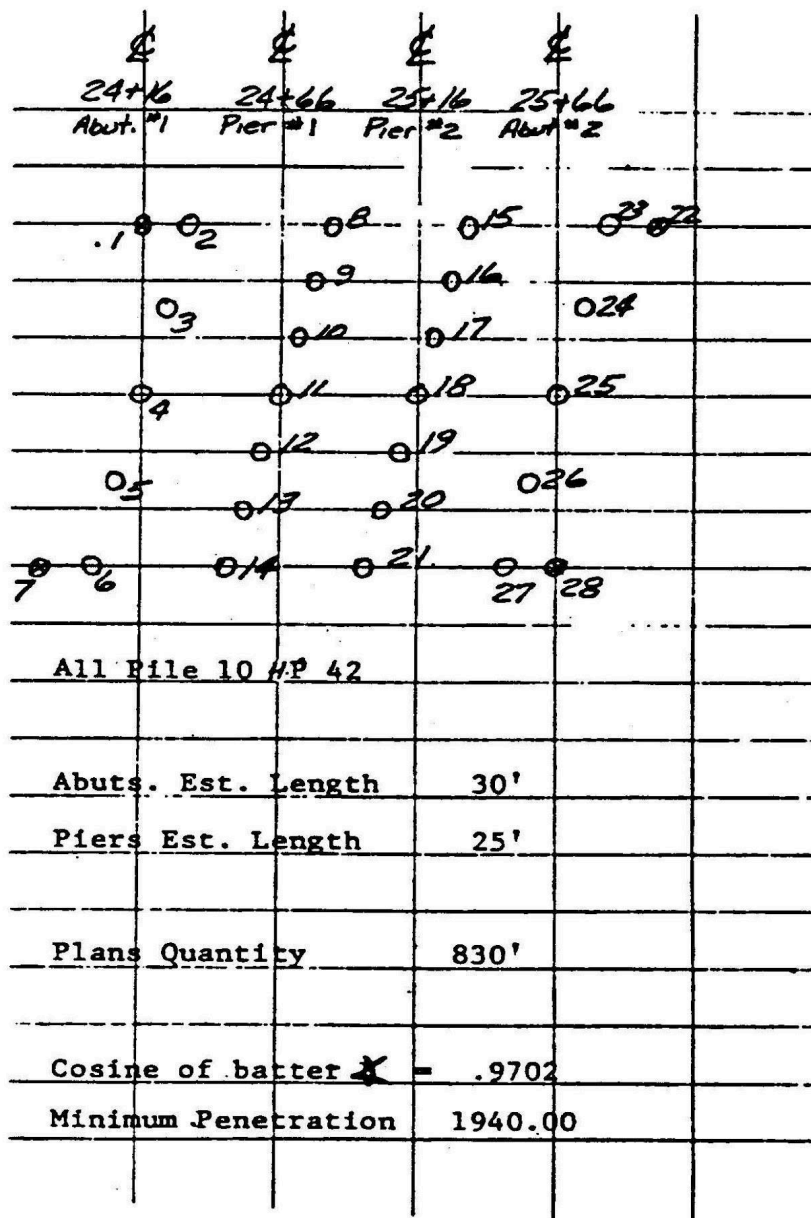 ℄ ℄ ℄ ℄
24+16 24+66 25+16 25+66
Abut. #1 Pier #1 Pier #2 Abut #2
.1 2 8 15 23 22
9 16
3 24
10 17
4 11 18 25
12 19
5 26
13 20
7 6 14 21. 27 28
All Pile 10 HP 42
Abuts. Est. Length 30'
Piers Est. Length 25'
Plans Quantity 830'
Cosine of batter - .9702
Minimum Penetration 1940.00